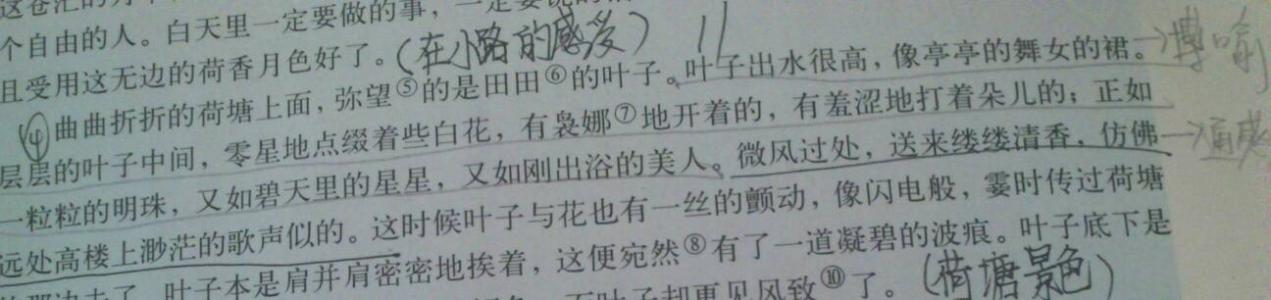 个自由的人。白天里一定要做的事，一定要说的
且受用这无边的荷香月色好了。（在小路的感受）
④曲曲折折的荷塘上面，弥望⑤的是田田⑥的叶子。叶子出水很高，像亭亭的舞女的裙。→博喻
层层的叶子中间，零星地点缀着些白花，有袅娜⑦地开着的，有羞涩地打着朵儿的；正如
一粒粒的明珠，又如碧天里的星星，又如刚出浴的美人。微风过处，送来缕缕清香，仿佛→通感
远处高楼上渺茫的歌声似的。这时候叶子与花也有一丝的颤动，像闪电般，霎时传过荷塘
的那边去了。叶子本是肩并肩密密地挨着，这便宛然⑧有了一道凝碧的波痕。叶子底下是
而叶子却更见风致⑩了。（荷塘景色）